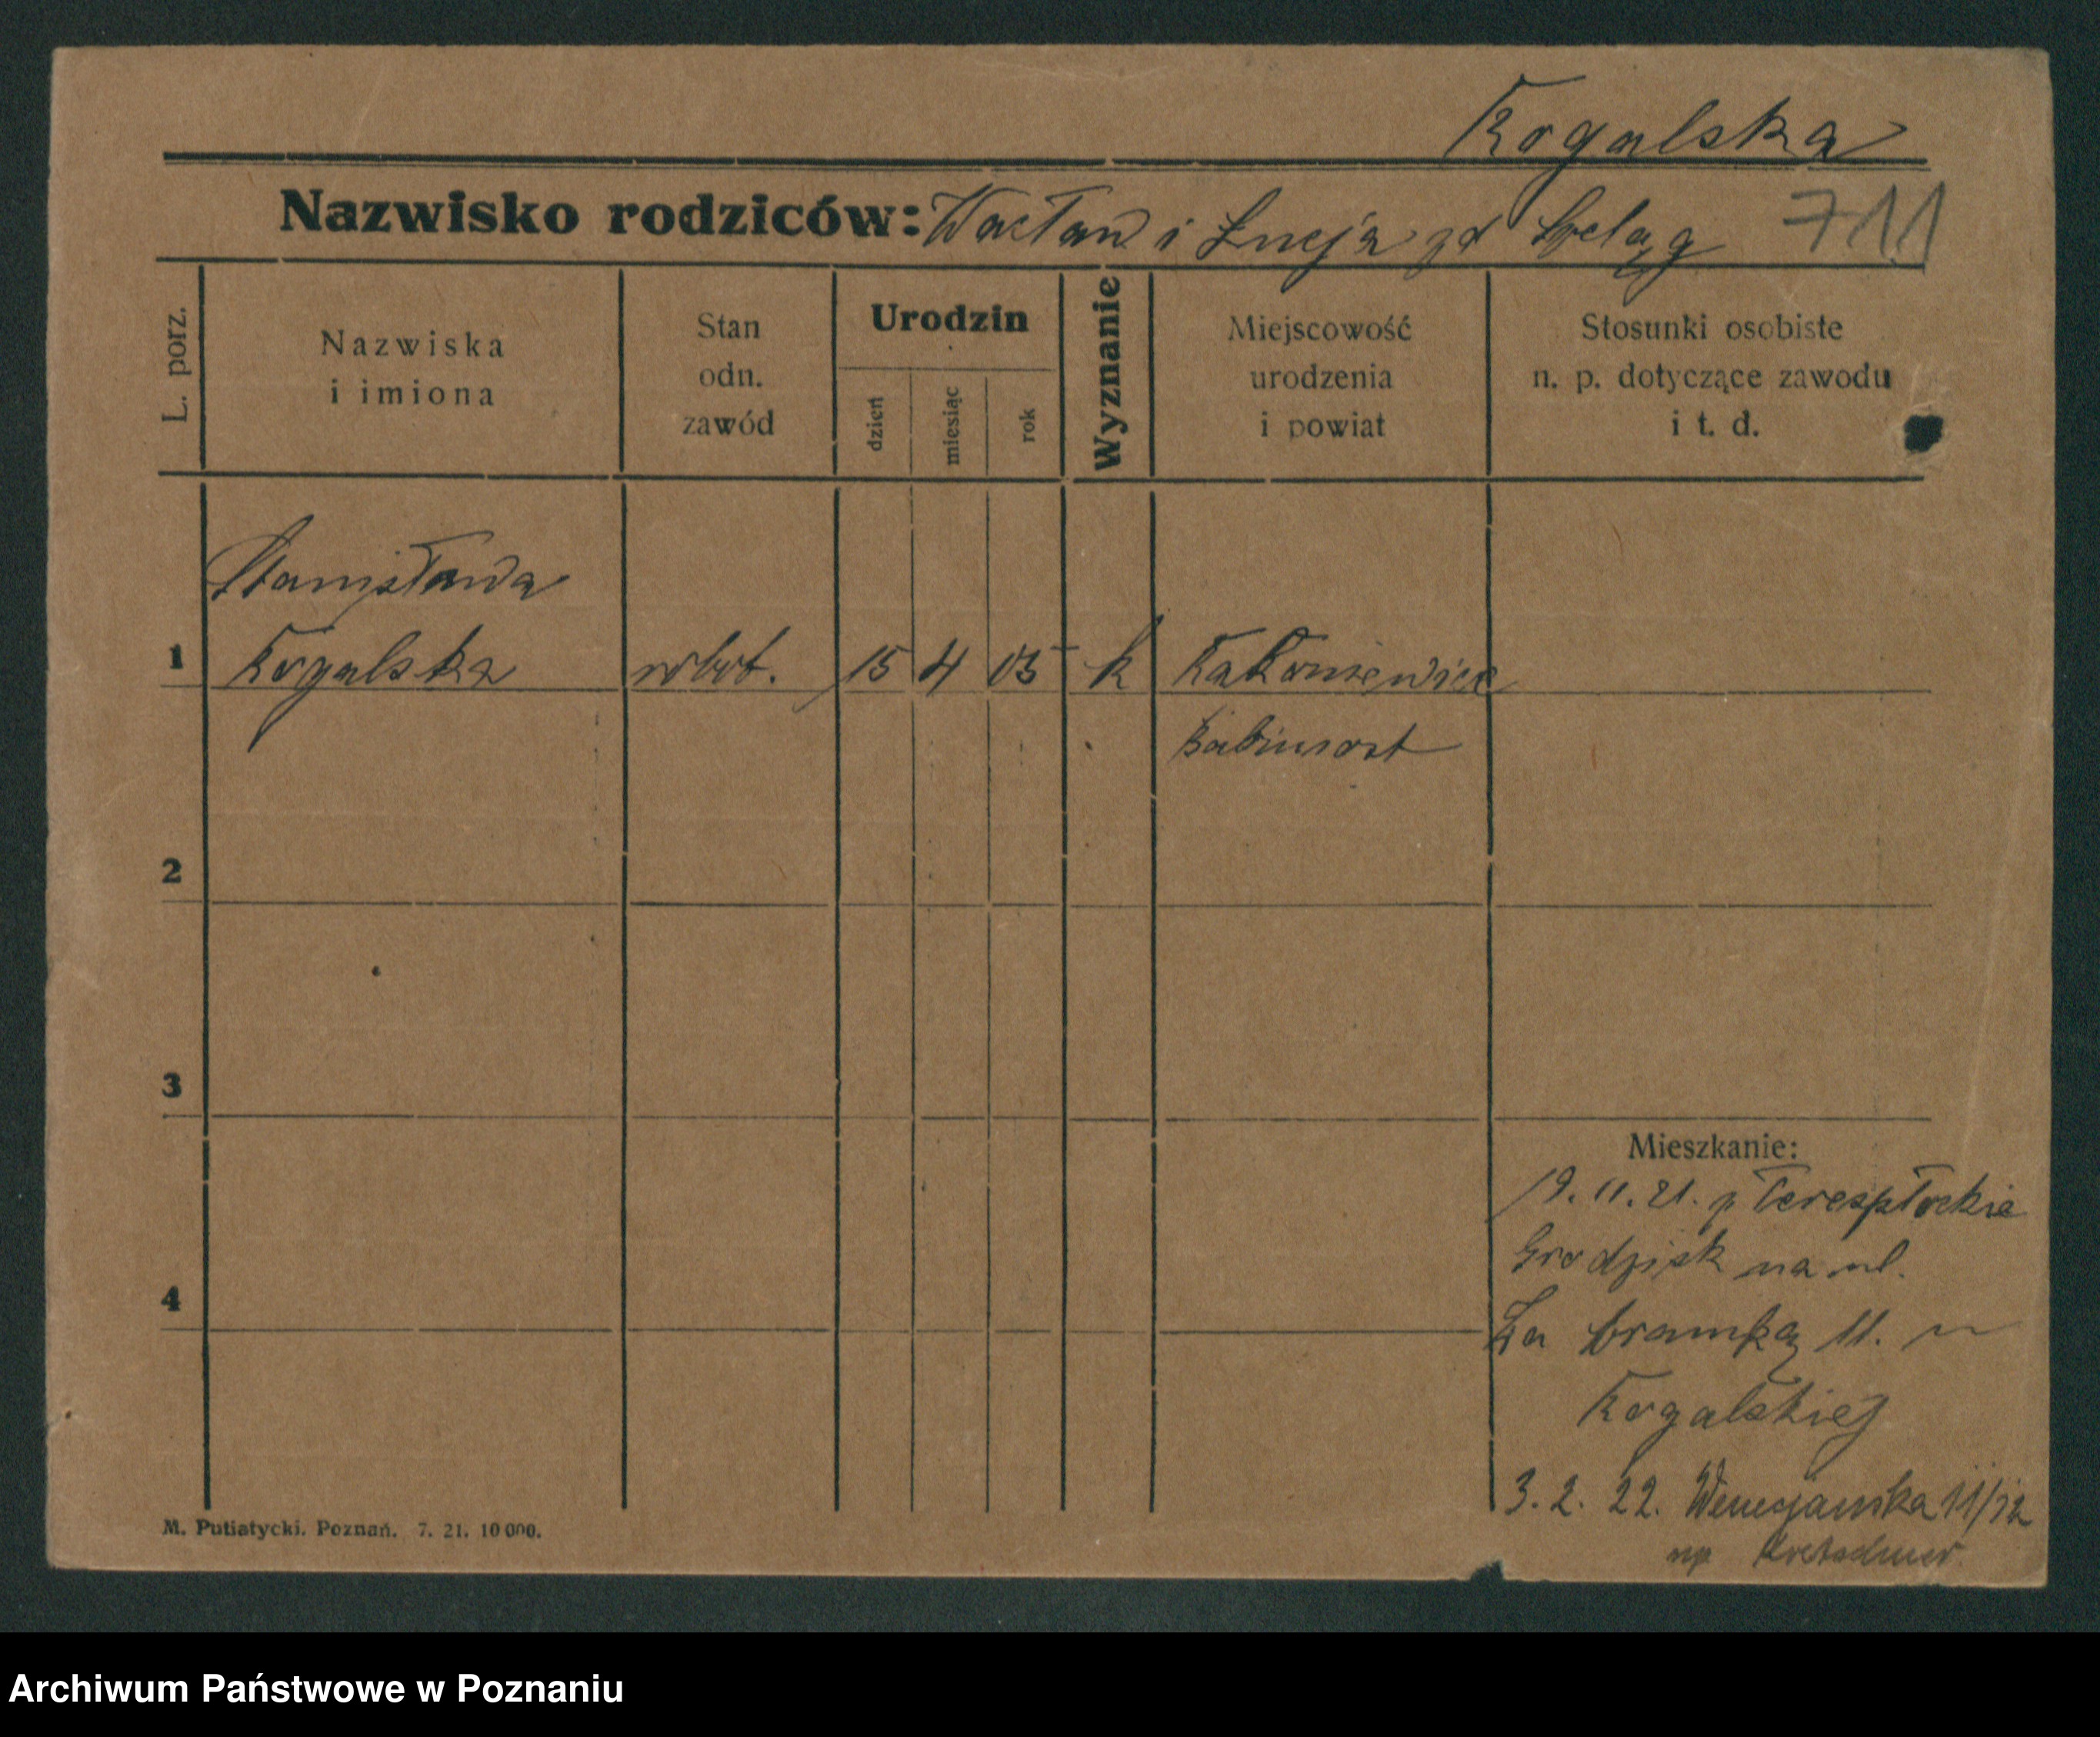 Rogalska
Nazwisko rodziców: Wacław i Łucja zd Szeląg 711
L. porz.
Nazwiska
i imiona
Stan
odn.
zawód
Urodzin
dzień
miesiąc
rok
Wyznanie
Miejscowość
urodzenia
i powiat
Stosunki osobiste
n. p. dotyczące zawodu
i t. d.
Stanisława
1 Rogalska robot. 15 4 05 k Rakoniewice
Babimost
2
3
Mieszkanie:
19. 11. 21. p
Grodzisk na ul.
4
Za bramką 11. u
Rogalskiej
3. 2. 22. Wenecjańska 11/12
np
M. Putiatycki. Poznań. 7. 21. 10 000.
Archiwum Państwowe w Poznaniu